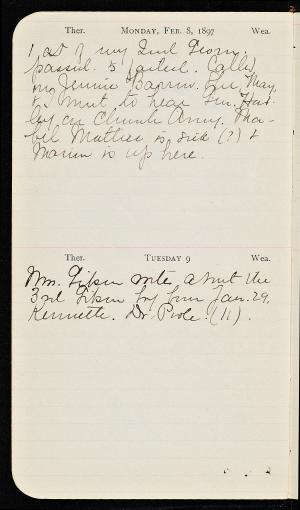 Ther. MONDAY, FEB. 8, 1897 Wea.
1 at of my 2nd Geom.
passed. 5 failed. Called
on Jennie Bapnn. Lue, May
& I went to hear Gen. Had-
ley on Church Army. Ma-
bel Mather is sick (?) &
Marion is up here.
Ther. TUESDAY 9 Wea.
Mrs. Gipson writes about the
3rd Gipson boy born Jan. 29,
Kennette. Dr. Poole. (11).